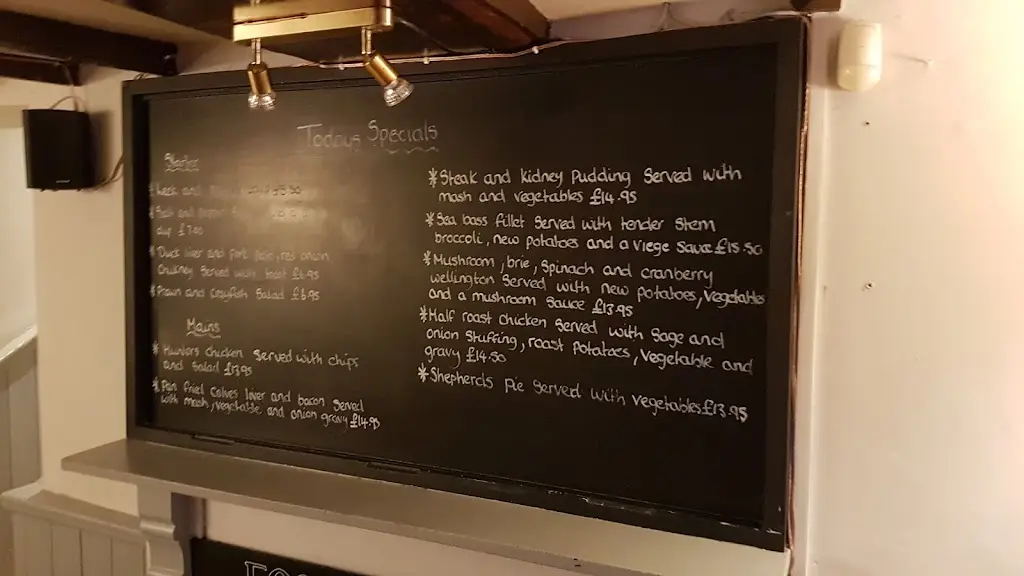 Todays Specials
Starter
* Leek and
* Salt and pepper
dip £7.00
* Duck liver and pork pate, red onion
Chutney Served with toast £6.95
* Prawn and crayfish Salad £6.95
Mains
* Hunters chicken Served with chips
and Salad £13.95
* Pan fried Calves liver and bacon Served
with mash, vegetable and onion gravy £14.95
* Steak and kidney Pudding Served with
mash and vegetables £14.95
* Sea bass fillet Served with tender Stem
broccoli, new potatoes and a vierge Sauce £15.50
* Mushroom, brie, Spinach and cranberry
wellington Served with new potatoes, Vegetables
and a mushroom Sauce £13.95
* Half roast Chicken Served with Sage and
onion Stuffing, roast Potatoes, Vegetable and
gravy £14.50
* Shepherds Pie Served with vegetables £13.95